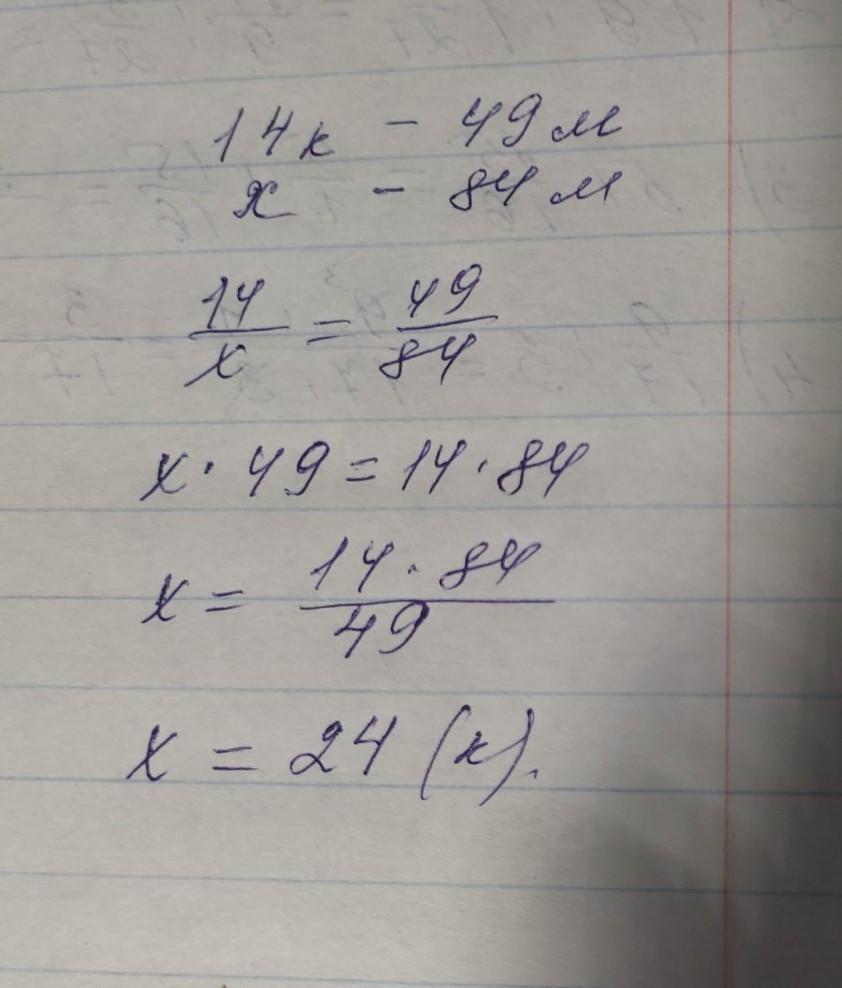 14к - 49м
х - 84м
14/х = 49/84
х · 49 = 14 · 84
х = 14 · 84/49
х = 24 (к).